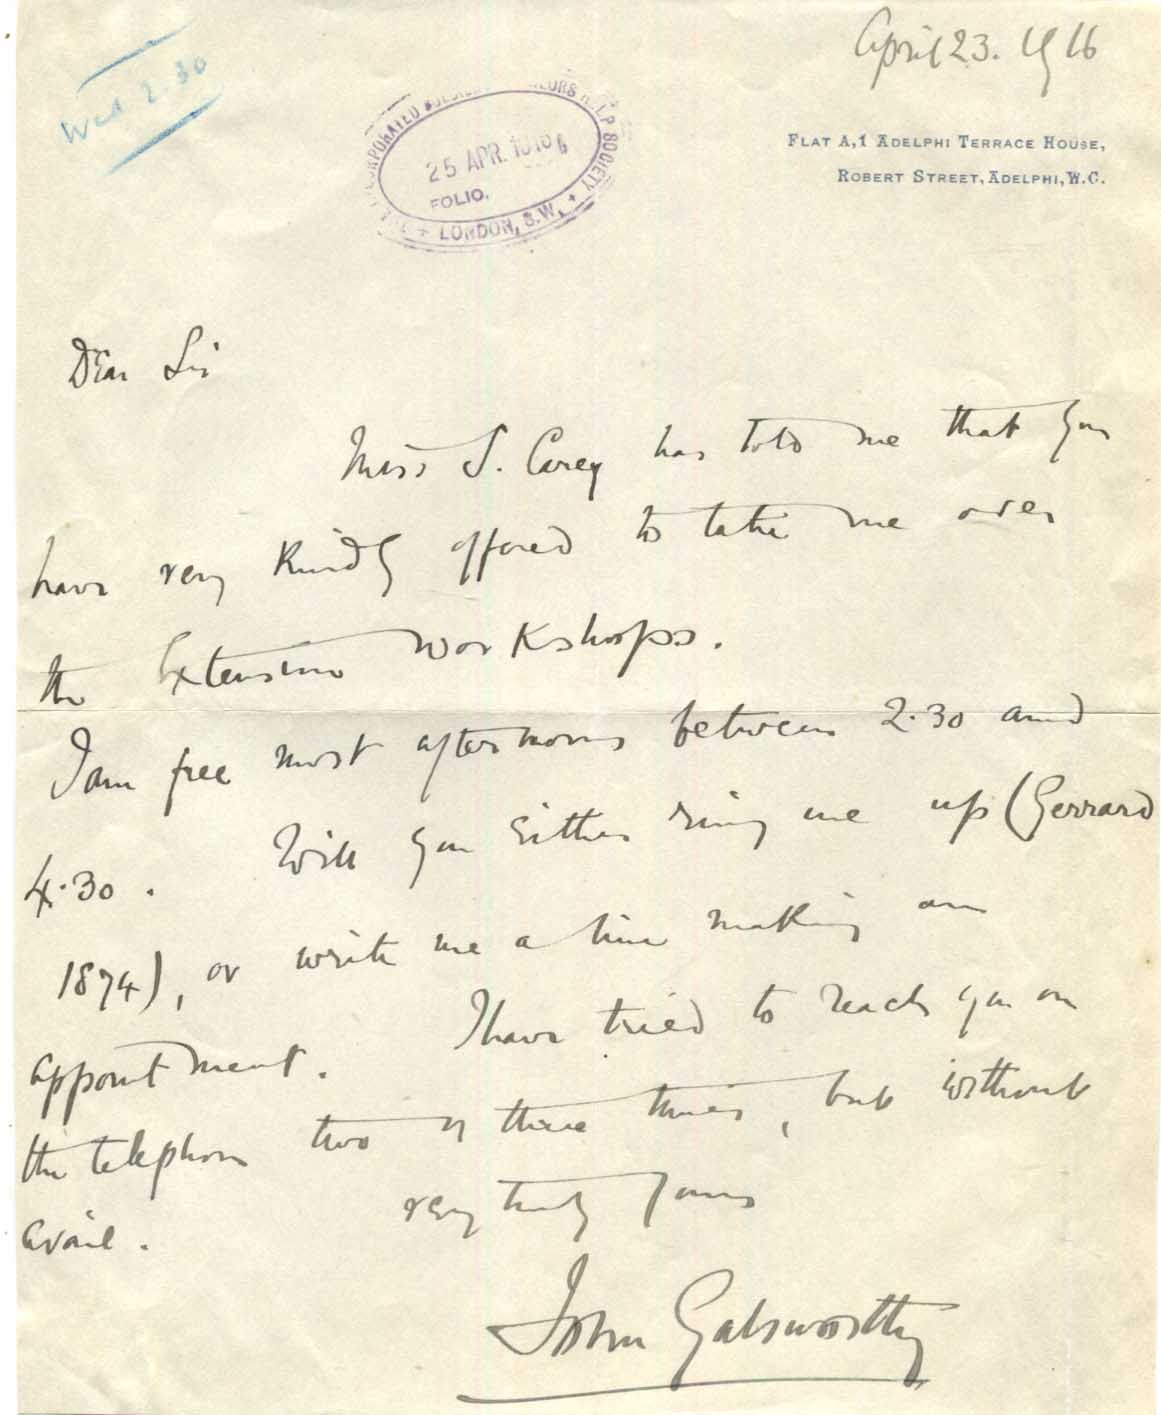 April 23. 1916
Wed 2.30
THE INCORPORATED SOLDIERS SAILORS HELP SOCIETY
25 APR. 1916
FOLIO.
+ LONDON, S.W. +
FLAT A,1 ADELPHI TERRACE HOUSE,
ROBERT STREET, ADELPHI, W.C.
Dear Sir
Miss S. Carey has told me that you
have very kindly offered to take me over
the Extension Workshops.
I am free most afternoons between 2.30 and
4.30. Will you either ring me up (Gerrard
1874), or write me a line making an
appointment. I have tried to reach you on
the telephone two or three times, but without
avail. very truly yours
John Galsworthy